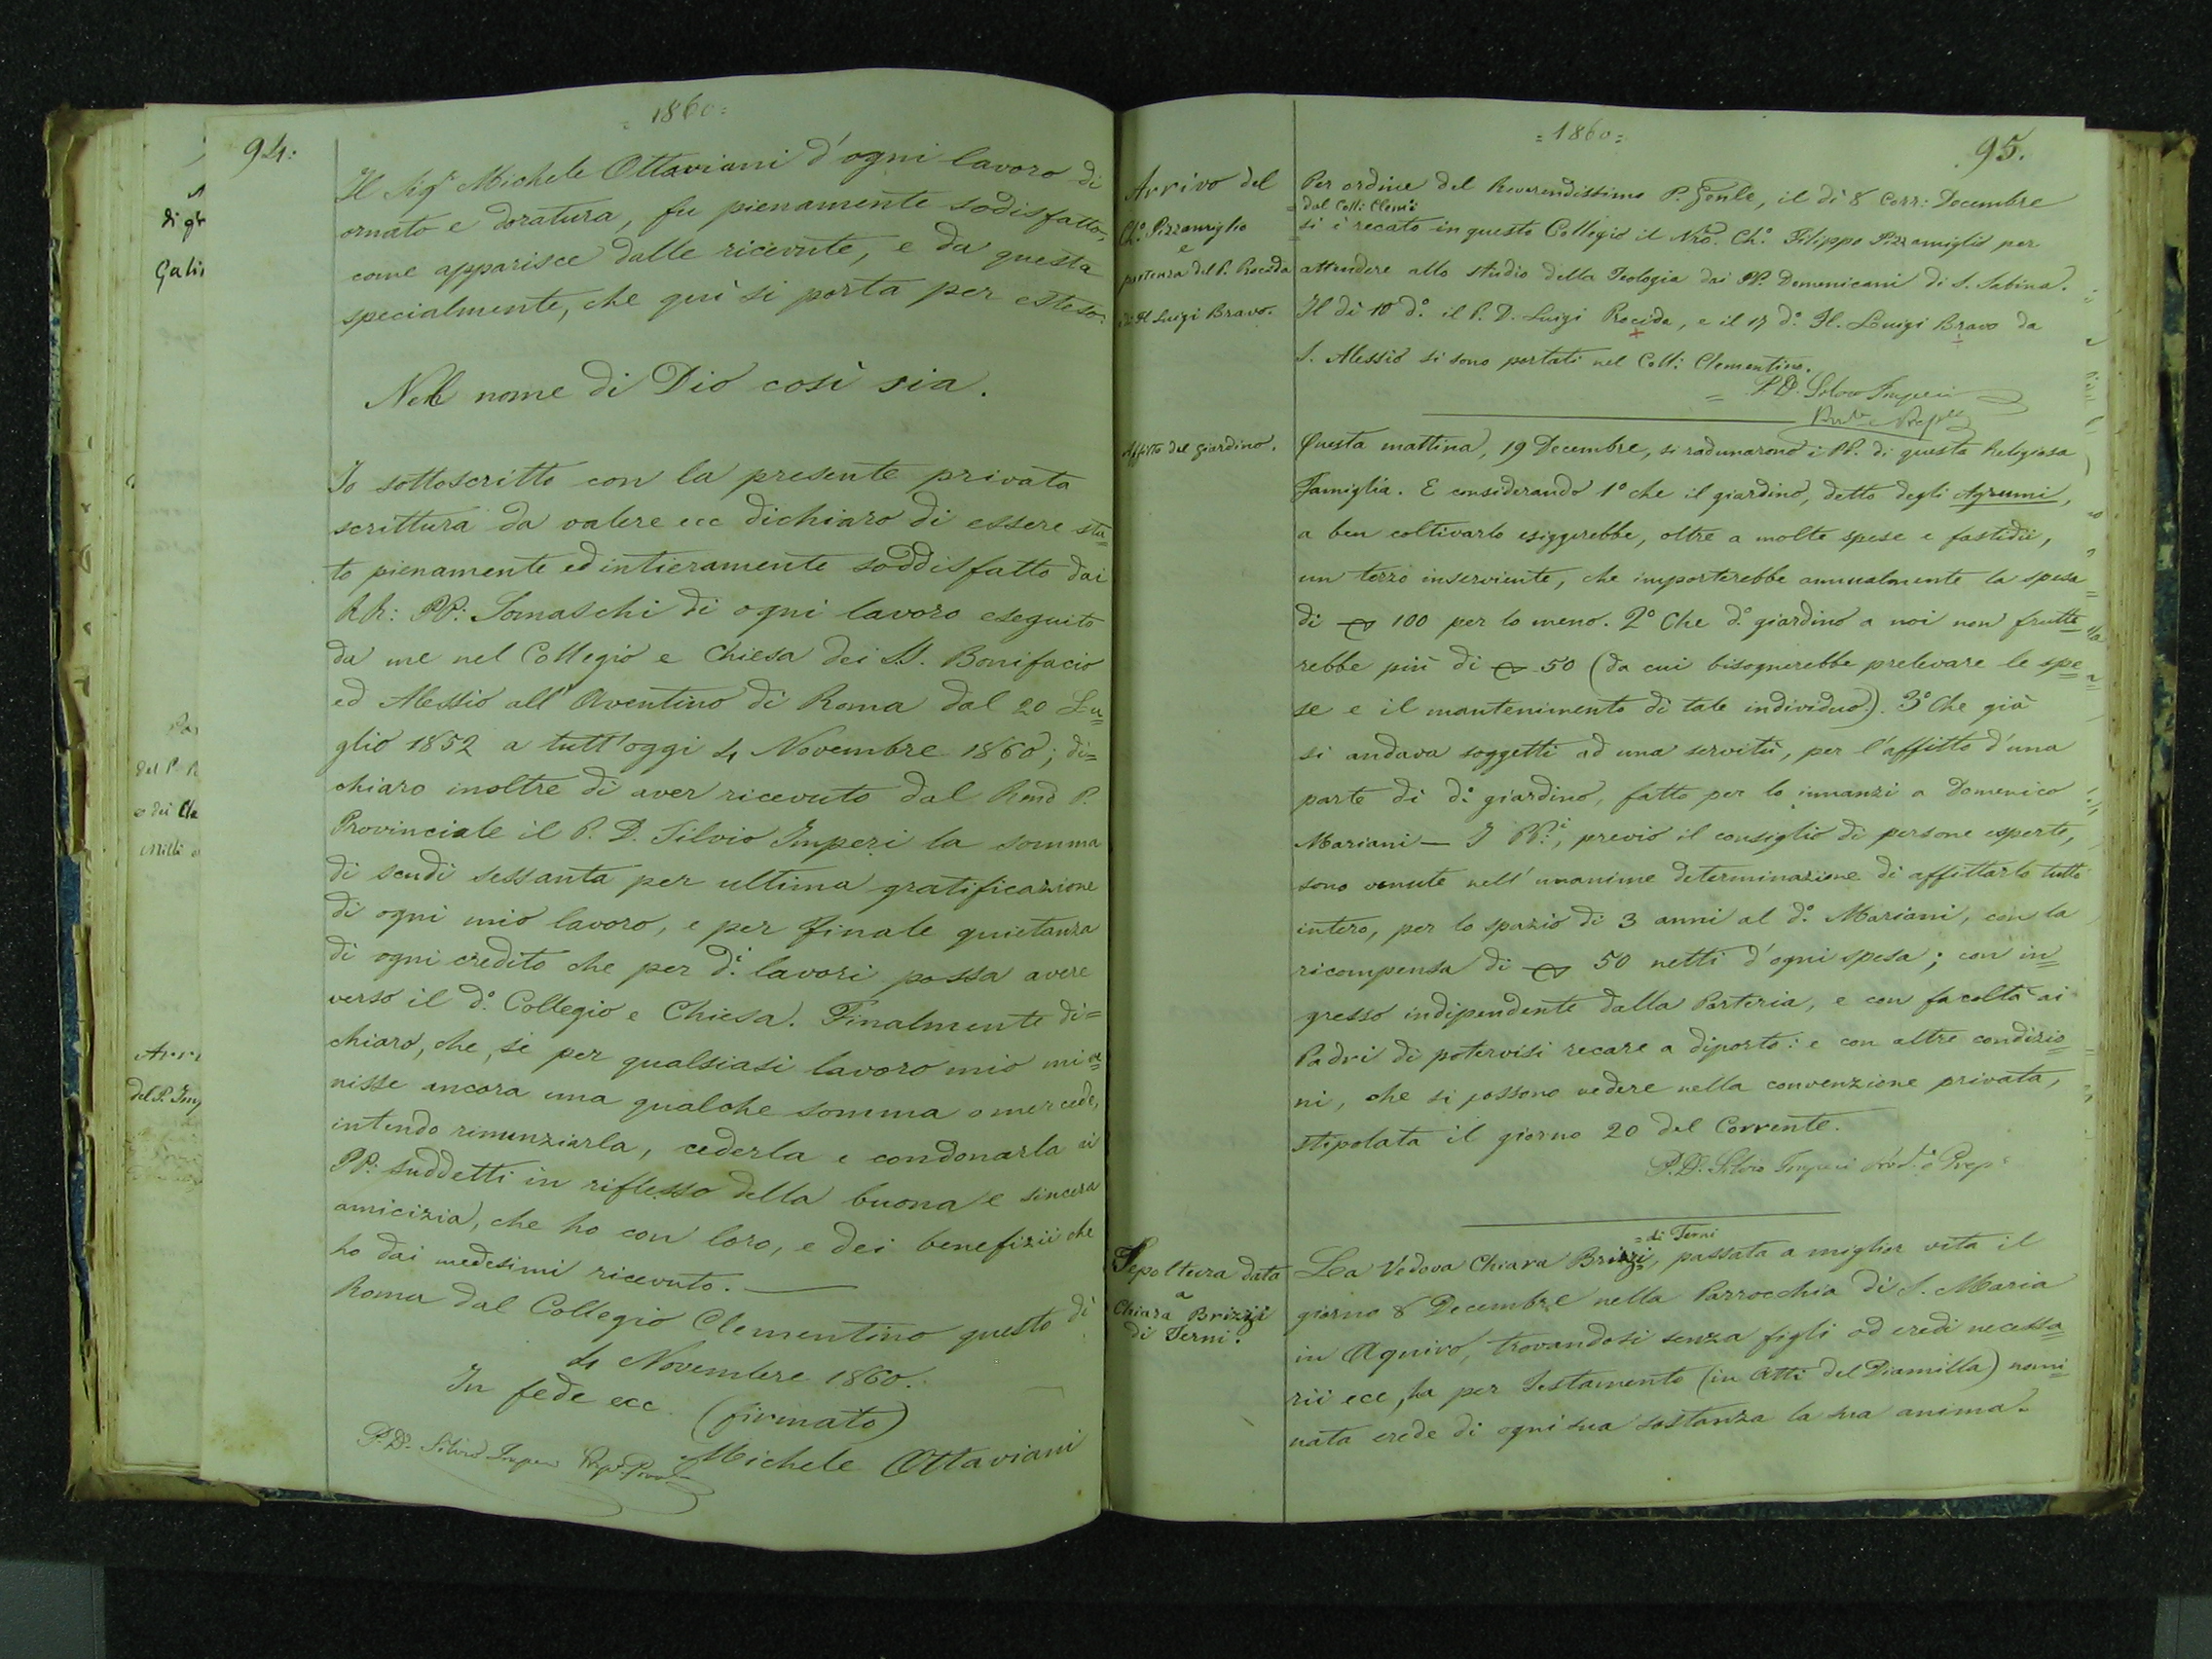 94:
1860=
Il Sigr Michele Ottaviani d'ogni lavoro di
ornato e doratura, fu pienamente sodisfatto,
come apparisce dalle ricevute, e da questa
specialmente, che quì si porta per esteso:
Nel nome di Dio così sia.
Io sottoscritto con la presente privata
scrittura da valere ecc dichiaro di essere sta=
to pienamente ed intieramente soddisfatto dai
RR: PP: Somaschi di ogni lavoro eseguito
da me nel Collegio e Chiesa dei S.S. Bonifacio
ed Alessio all'Aventino di Roma dal 20 Lu=
glio 1852 a tutt'oggi 4 Novembre 1860; di=
chiaro inoltre di aver ricevuto dal Rmo P.
Provinciale il P. D. Silvio Imperi la somma
di scudi sessanta per ultima gratificazione
di ogni mio lavoro, e per finale quietanza
di ogni credito che per d.i lavori possa avere
verso il d.o Collegio e Chiesa. Finalmente di=
chiaro, che, se per qualsiasi lavoro mio mi ve=
nisse ancora una qualche somma o mercede,
intendo rinunziarla, cederla e condonarla ai
PP: suddetti in riflesso della buona e sincera
amicizia, che ho con loro, e dei benefizii che
ho dai medesimi ricevuto. —
Roma dal Collegio Clementino questo dì
4 Novembre 1860.
In fede ecc. (firmato)
Michele Ottaviani
P. D. Silvio Imperi
=1860=
95.
Arrivo del
Ch.o Pizzamiglio
e
partenza del P. Rocida
Luigi Bravo.
Per ordine del Reverendissimo P. Gĕnle, il dì 8 Corr: Decembre
=dal Coll: Clem:i
si è recato in questo Collegio il Nro. Ch.o Filippo Pizzamiglio per
attendere allo studio della Teologia dai PP. Domenicani di S. Sabina.
Il dì 10 d.o il P. D. Luigi Rocida, e il 17 d.o Fl. Luigi Bravo da
S. Alessio si sono portati nel Coll: Clementino.
P. D. Silvio Imperi
Affitto del giardino.
Questa mattina, 19 Decembre, si radunarono i PP. di questa Religiosa
Famiglia. E considerando 1o che il giardino, detto degli Agrumi,
a ben coltivarlo esiggerebbe, oltre a molte spese e fastidii,
un terzo inserviente, che importerebbe annualmente la spesa
di 100 per lo meno. 2o Che d.o giardino a noi non frutte=
rebbe più di 50 (da cui bisognerebbe prelevare le spe=
se e il mantenimento di tale individuo). 3o Che già
si andava soggetti ad una servitù, per l'affitto d'una
parte di d.o giardino, fatto per lo innanzi a Domenico
Mariani — I PP.i, previo il consiglio di persone esperte,
sono venute nell'unanime determinazione di affittarlo tutto
intero, per lo spazio di 3 anni al d.o Mariani, con la
ricompensa di 50 netti d'ogni spesa; con in=
gresso indipendente dalla Porteria, e con facoltà ai
Padri di potervisi recare a diporto: e con altre condizio=
ni, che si possono vedere nella convenzione privata,
stipolata il giorno 20 del Corrente.
P. D. Silvio Imperi
Sepoltura data
a
Chiara Brizzi
di Terni.
=di Terni
La Vedova Chiara Brizzi, passata a miglior vita il
giorno 8 Decembre nella Parrocchia di S. Maria
in Aquiro, trovandosi senza figli od eredi necessa=
rii ecc, ha per Testamento (in Atti del Diamilla) nomi=
nata erede di ogni sua sostanza la sua anima.